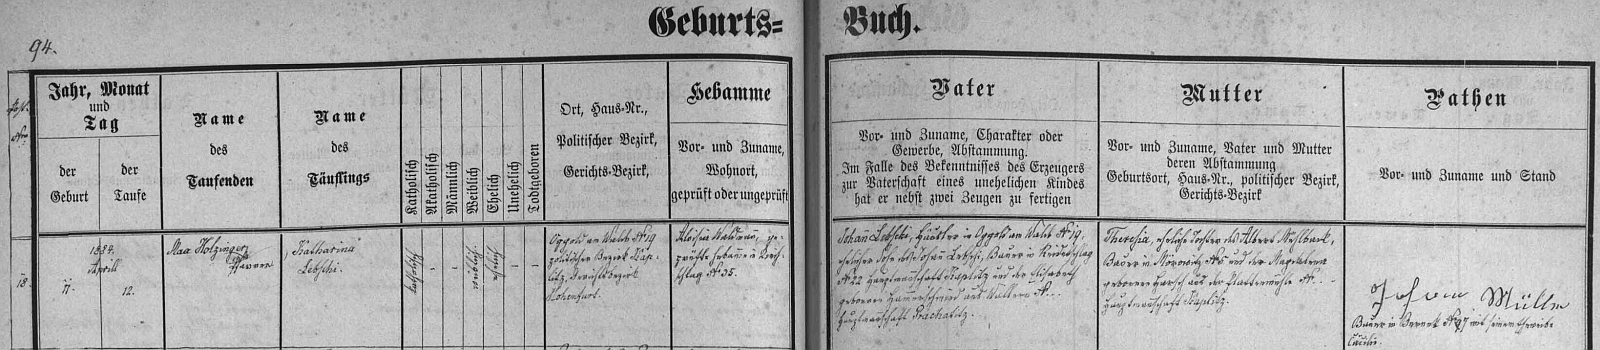 Geburts= Buch.
94.
Post. Nro.
Jahr, Monat
und
Tag
der
Geburt
der
Taufe
Name
des
Taufenden
Name
des
Täuflings
Katholisch
Akatholisch
Männlich
Weiblich
Ehelich
Unehelich
Todtgeboren
Ort, Haus-Nr.,
Politischer Bezirk,
Gerichts-Bezirk,
Hebamme
Vor- und Zuname,
Wohnort,
geprüft oder ungeprüft
Vater
Vor- und Zuname, Charakter oder
Gewerbe, Abstammung.
Im Falle des Bekenntnisses des Erzeugers
zur Vaterschaft eines unehelichen Kindes
hat er nebst zwei Zeugen zu fertigen
Mutter
Vor- und Zuname, Vater und Mutter
deren Abstammung
Geburtsort, Haus-Nr., politischer Bezirk,
Gerichts-Bezirk
Pathen
Vor- und Zuname und Stand
18.
1884.
April
11.
12.
Holzinger
Pfarrer
Katharina
Katholisch
- -
- -
Oggold am Wald No 19
politischer Bezirk Kap-
litz, Gerichtsbezirk
Hohenfurt.
ge-
prüfte Hebamme in Kirch-
schlag No 35.
Johann in Oggold am Wald No 19,
ehelicher Sohn des Johann Bauer in Kirchschlag
No 22 Hauptmannschaft Kaplitz und der Elisabeth
geborenen aus Wallern No...
Hauptmannschaft Prachatitz.
Theresia, eheliche Tochter des Albert
Bauer in No 5 und der Magdalena
geborene aus der No...
Hauptmannschaft Kaplitz.
Johann Müller
Bauer in No 27 mit seinem Eheweibe
Cäcilie.